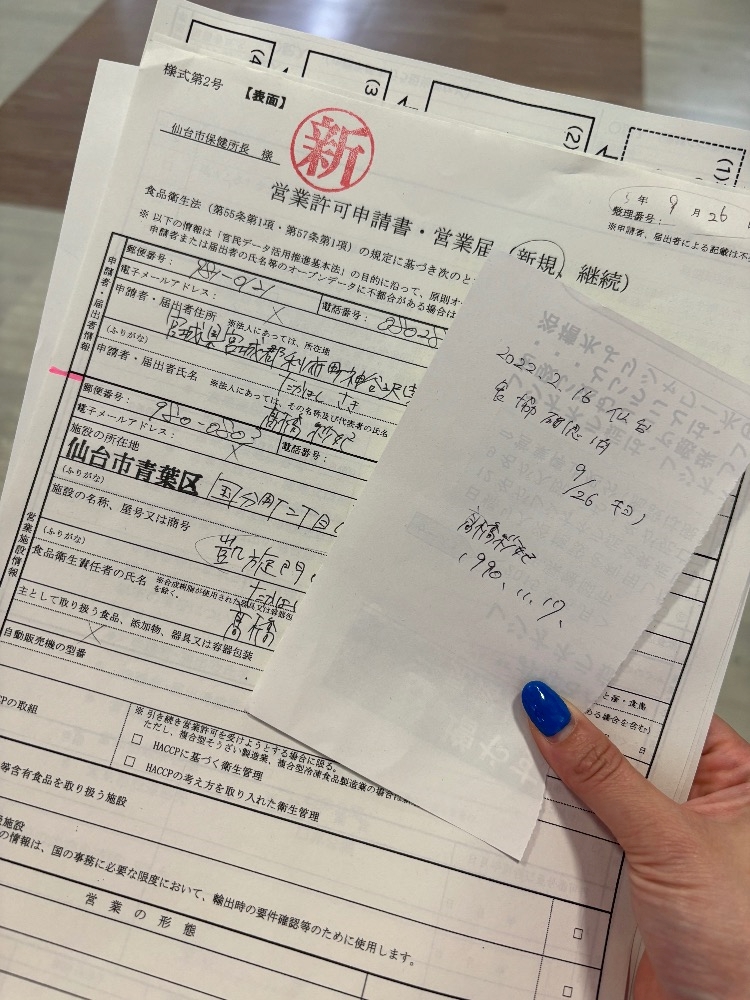 (4)
(3)
(2)
(1)
様式第2号
【表面】
新
仙台市保健所長 様
5年 9月 26日
整理番号：
※申請者、届出者による記載は不
営業許可申請書・営業届（新規、継続）
食品衛生法（第55条第1項・第57条第1項）の規定に基づき次のと
※ 以下の情報は「官民データ活用推進基本法」の目的に沿って、原則オー
申請者または届出者の氏名等のオープンデータに不都合がある場合は
申請者・届出者情報
郵便番号：
電話番号：
電子メールアドレス：
申請者・届出者住所 ※法人にあっては、所在地
宮城県宮城郡利府町神谷沢
(ふりがな) たかはし さき
申請者・届出者氏名 ※法人にあっては、その名称及び代表者の氏名
高橋
郵便番号： 980-0803
電話番号：
電子メールアドレス：
営業施設情報
施設の所在地
仙台市青葉区 国分町二丁目
(ふりがな)
施設の名称、屋号又は商号
凱旋門
(ふりがな) たかはし
食品衛生責任者の氏名 ※合成樹脂が使用された器具又は容器包装を除く。
高橋
主として取り扱う食品、添加物、器具又は容器包装
自動販売機の型番
2022.2.16 仙台
食協確認済
9/26
高橋
1990.11.17.
CPの取組
※ 引き続き営業許可を受けようとする場合に限る。
ただし、複合型そうざい製造業、複合型冷凍食品製造業の場合は
□ HACCPに基づく衛生管理
□ HACCPの考え方を取り入れた衛生管理
ある場合を含む)
日
等含有食品を取り扱う施設
施設
の情報は、国の事務に必要な限度において、輸出時の要件確認等のために使用します。
□
営業の形態
□